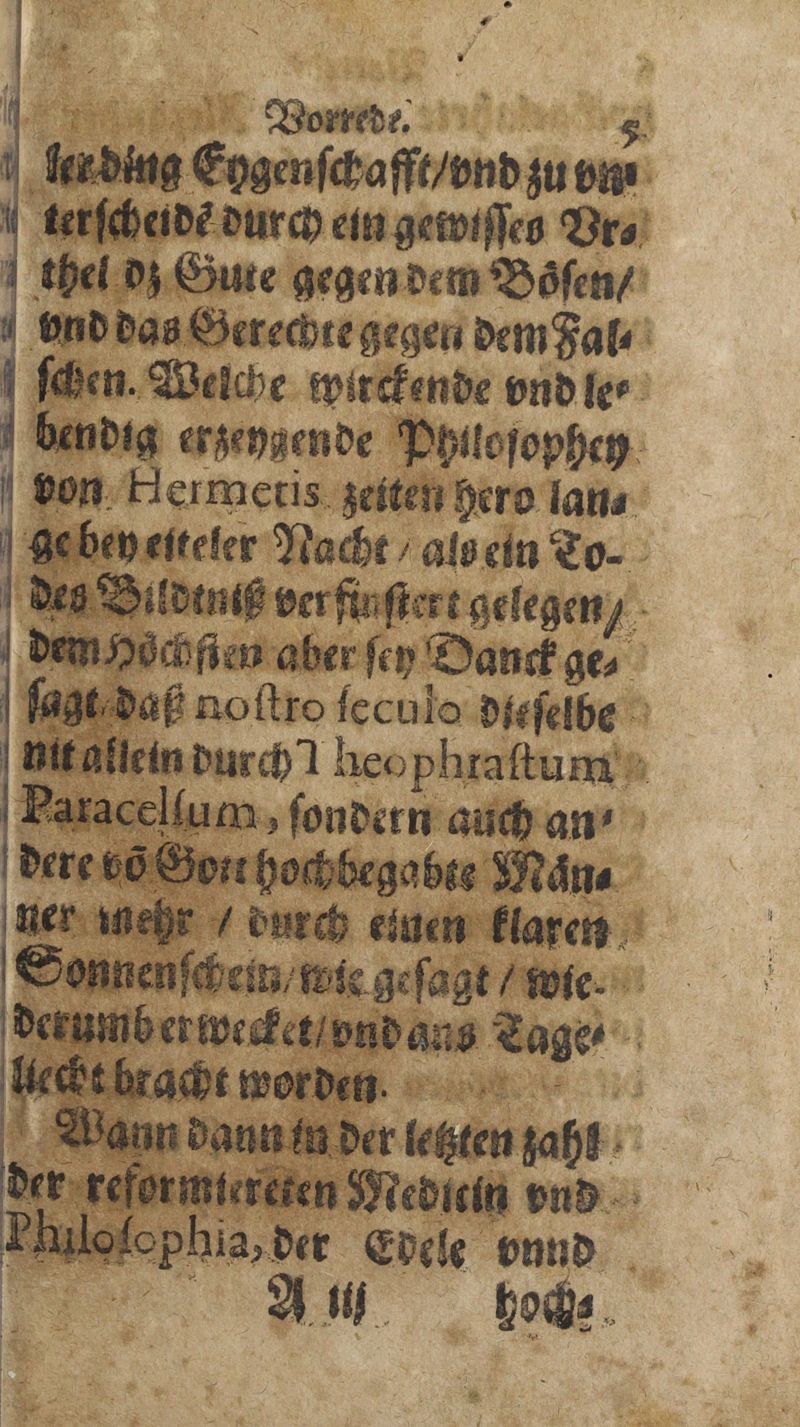 Vorrede. 5
lerding Eygenschafft/vnd zu vn⸗
terscheidẽ durch ein gewisses Vr⸗
thel dz Gute gegen dem Bösen/
vnd das Gerechte gegen dem Fal⸗
schen. Welche wirckende vnd le⸗
bendig erzeygende Philosophey
von Hermetis zeiten hero lan⸗
ge bey eiteler Nacht / als ein To-
des Bildtniß verfinstert gelegen/
dem Höchsten aber sey Danck ge⸗
sagt/ daß nostro seculo dieselbe
nit allein durch Theophrastum
Paracelsum, sondern auch an⸗
dere võ Gott hochbegabte Män⸗
ner mehr / durch einen klaren
Sonnenschein/ wie gesagt / wie-
derumb erwecket/ vnd ans Tage⸗
liecht bracht worden.
Wann dann in der letzten zahl
der reformiereten Medicin vnd
Philosophia, der Edele vnnd
A iij hoch⸗